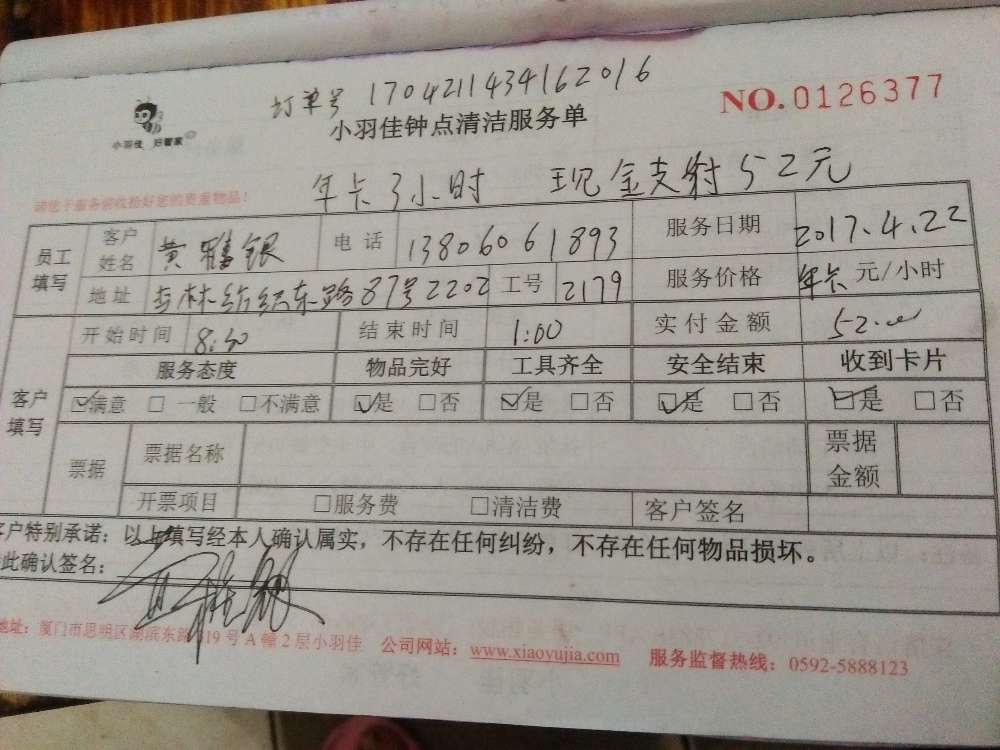 订单号 1704211434162016
NO.0126377
小羽佳 好管家
小羽佳钟点清洁服务单
年卡3小时 现金支付52元
请您于服务前收拾好您的贵重物品!
员工填写 客户姓名 黄雅银 电话 13806061893 服务日期 2017.4.22
地址 87号2202 工号 2179 服务价格 年卡 元/小时
客户填写 开始时间 8:30 结束时间 1:00 实付金额 52.00
服务态度 物品完好 工具齐全 安全结束 收到卡片
☑满意 □一般 □不满意 ☑是 □否 ☑是 □否 ☑是 □否 ☑是 □否
票据 票据名称 票据金额
开票项目 □服务费 □清洁费 客户签名
客户特别承诺:以上填写经本人确认属实,不存在任何纠纷,不存在任何物品损坏。
此确认签名:
地址:厦门市思明区湖滨东路319号A幢2层小羽佳 公司网站:www.xiaoyujia.com 服务监督热线:0592-5888123